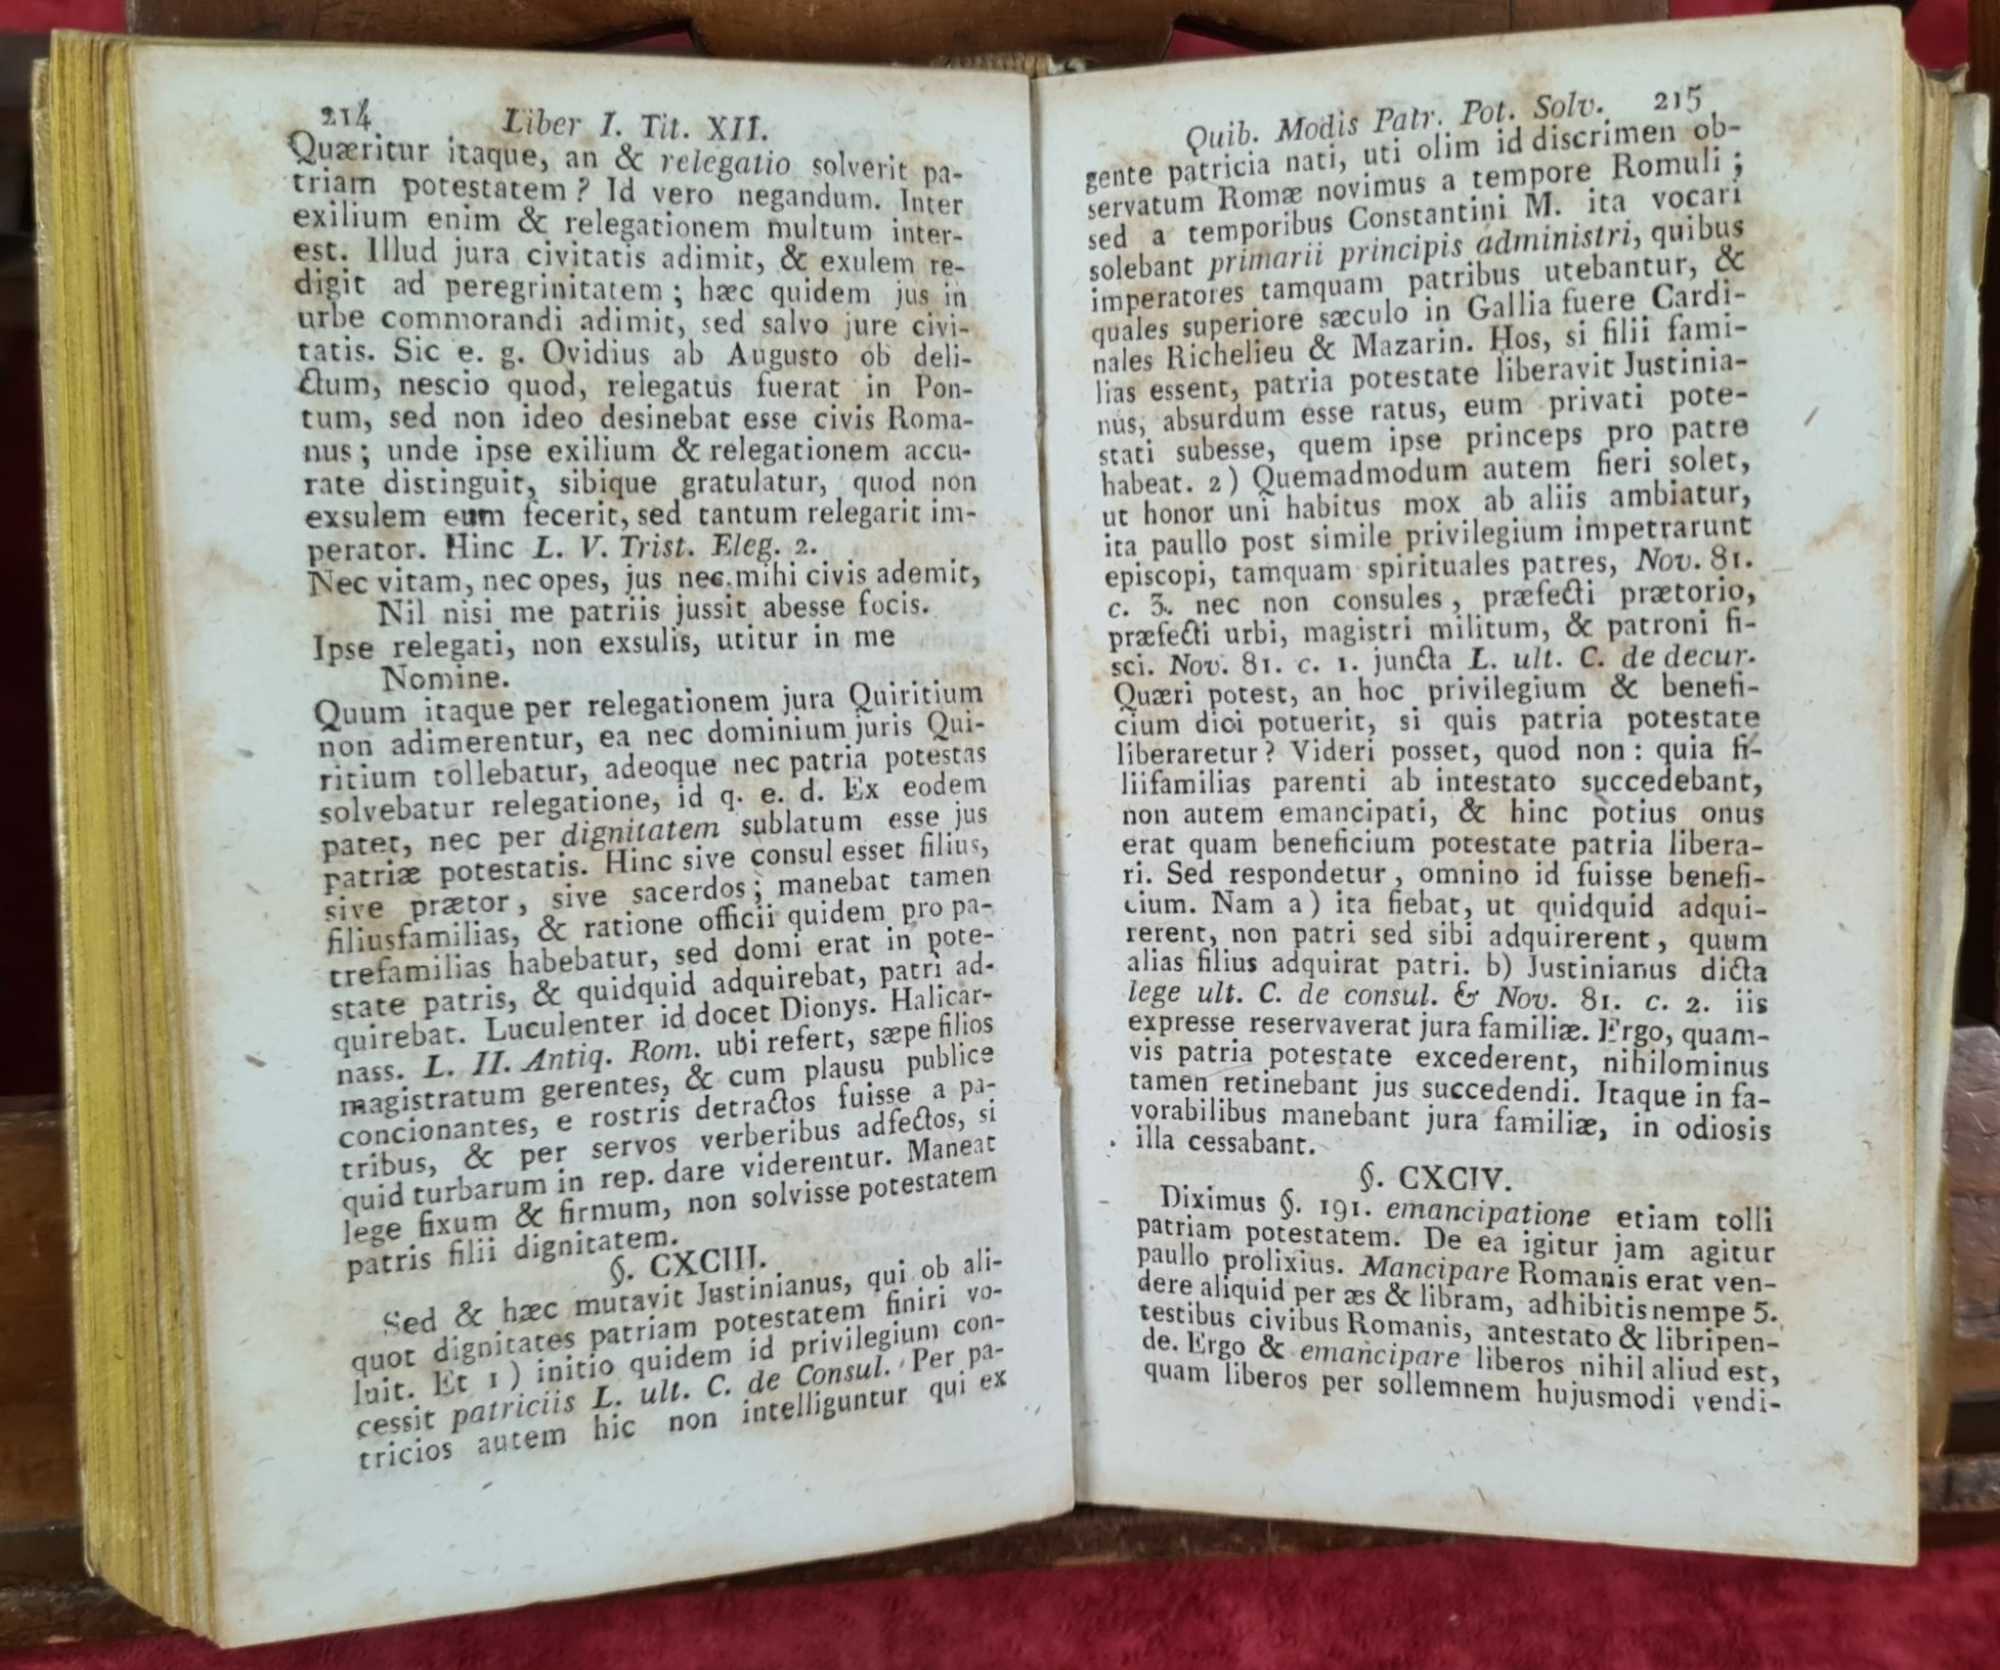 214 Liber I. Tit. XII.
Quæritur itaque, an & relegatio solverit pa-
triam potestatem? Id vero negandum. Inter
exilium enim & relegationem multum inter-
est. Illud jura civitatis adimit, & exulem re-
digit ad peregrinitatem; hæc quidem jus in
urbe commorandi adimit, sed salvo jure civi-
tatis. Sic e. g. Ovidius ab Augusto ob deli-
ctum, nescio quod, relegatus fuerat in Pon-
tum, sed non ideo desinebat esse civis Roma-
nus; unde ipse exilium & relegationem accu-
rate distinguit, sibique gratulatur, quod non
exsulem eum fecerit, sed tantum relegarit im-
perator. Hinc L. V. Trist. Eleg. 2.
Nec vitam, nec opes, jus nec mihi civis ademit,
Nil nisi me patriis jussit abesse focis.
Ipse relegati, non exsulis, utitur in me
Nomine.
Quum itaque per relegationem jura Quiritium
non adimerentur, ea nec dominium juris Qui-
ritium tollebatur, adeoque nec patria potestas
solvebatur relegatione, id q. e. d. Ex eodem
patet, nec per dignitatem sublatum esse jus
patriæ potestatis. Hinc sive consul esset filius,
sive prætor, sive sacerdos; manebat tamen
filiusfamilias, & ratione officii quidem pro pa-
trefamilias habebatur, sed domi erat in pote-
state patris, & quidquid adquirebat, patri ad-
quirebat. Luculenter id docet Dionys. Halicar-
nass. L. II. Antiq. Rom. ubi refert, sæpe filios
magistratum gerentes, & cum plausu publice
concionantes, e rostris detractos fuisse a pa-
tribus, & per servos verberibus adfectos, si
quid turbarum in rep. dare viderentur. Maneat
lege fixum & firmum, non solvisse potestatem
patris filii dignitatem.
§. CXCIII.
Sed & hæc mutavit Justinianus, qui ob ali-
quot dignitates patriam potestatem finiri vo-
luit. Et 1) initio quidem id privilegium con-
cessit patriciis L. ult. C. de Consul. Per pa-
tricios autem hic non intelliguntur qui ex
Quib. Modis Patr. Pot. Solv. 215
gente patricia nati, uti olim id discrimen ob-
servatum Romæ novimus a tempore Romuli;
sed a temporibus Constantini M. ita vocari
solebant primarii principis administri, quibus
imperatores tamquam patribus utebantur, &
quales superiore sæculo in Gallia fuere Cardi-
nales Richelieu & Mazarin. Hos, si filii fami-
lias essent, patria potestate liberavit Justinia-
nus, absurdum esse ratus, eum privati pote-
stati subesse, quem ipse princeps pro patre
habeat. 2) Quemadmodum autem fieri solet,
ut honor uni habitus mox ab aliis ambiatur,
ita paullo post simile privilegium impetrarunt
episcopi, tamquam spirituales patres, Nov. 81.
c. 3. nec non consules, præfecti prætorio,
præfecti urbi, magistri militum, & patroni fi-
sci. Nov. 81. c. 1. juncta L. ult. C. de decur.
Quæri potest, an hoc privilegium & benefi-
cium dici potuerit, si quis patria potestate
liberaretur? Videri posset, quod non: quia fi-
liifamilias parenti ab intestato succedebant,
non autem emancipati, & hinc potius onus
erat quam beneficium potestate patria libera-
ri. Sed respondetur, omnino id fuisse benefi-
cium. Nam a) ita fiebat, ut quidquid adqui-
rerent, non patri sed sibi adquirerent, quum
alias filius adquirat patri. b) Justinianus dicta
lege ult. C. de consul. & Nov. 81. c. 2. iis
expresse reservaverat jura familiæ. Ergo, quam-
vis patria potestate excederent, nihilominus
tamen retinebant jus succedendi. Itaque in fa-
vorabilibus manebant jura familiæ, in odiosis
illa cessabant.
§. CXCIV.
Diximus §. 191. emancipatione etiam tolli
patriam potestatem. De ea igitur jam agitur
paullo prolixius. Mancipare Romanis erat ven-
dere aliquid per æs & libram, adhibitis nempe 5.
testibus civibus Romanis, antestato & libripen-
de. Ergo & emancipare liberos nihil aliud est,
quam liberos per sollemnem hujusmodi vendi-